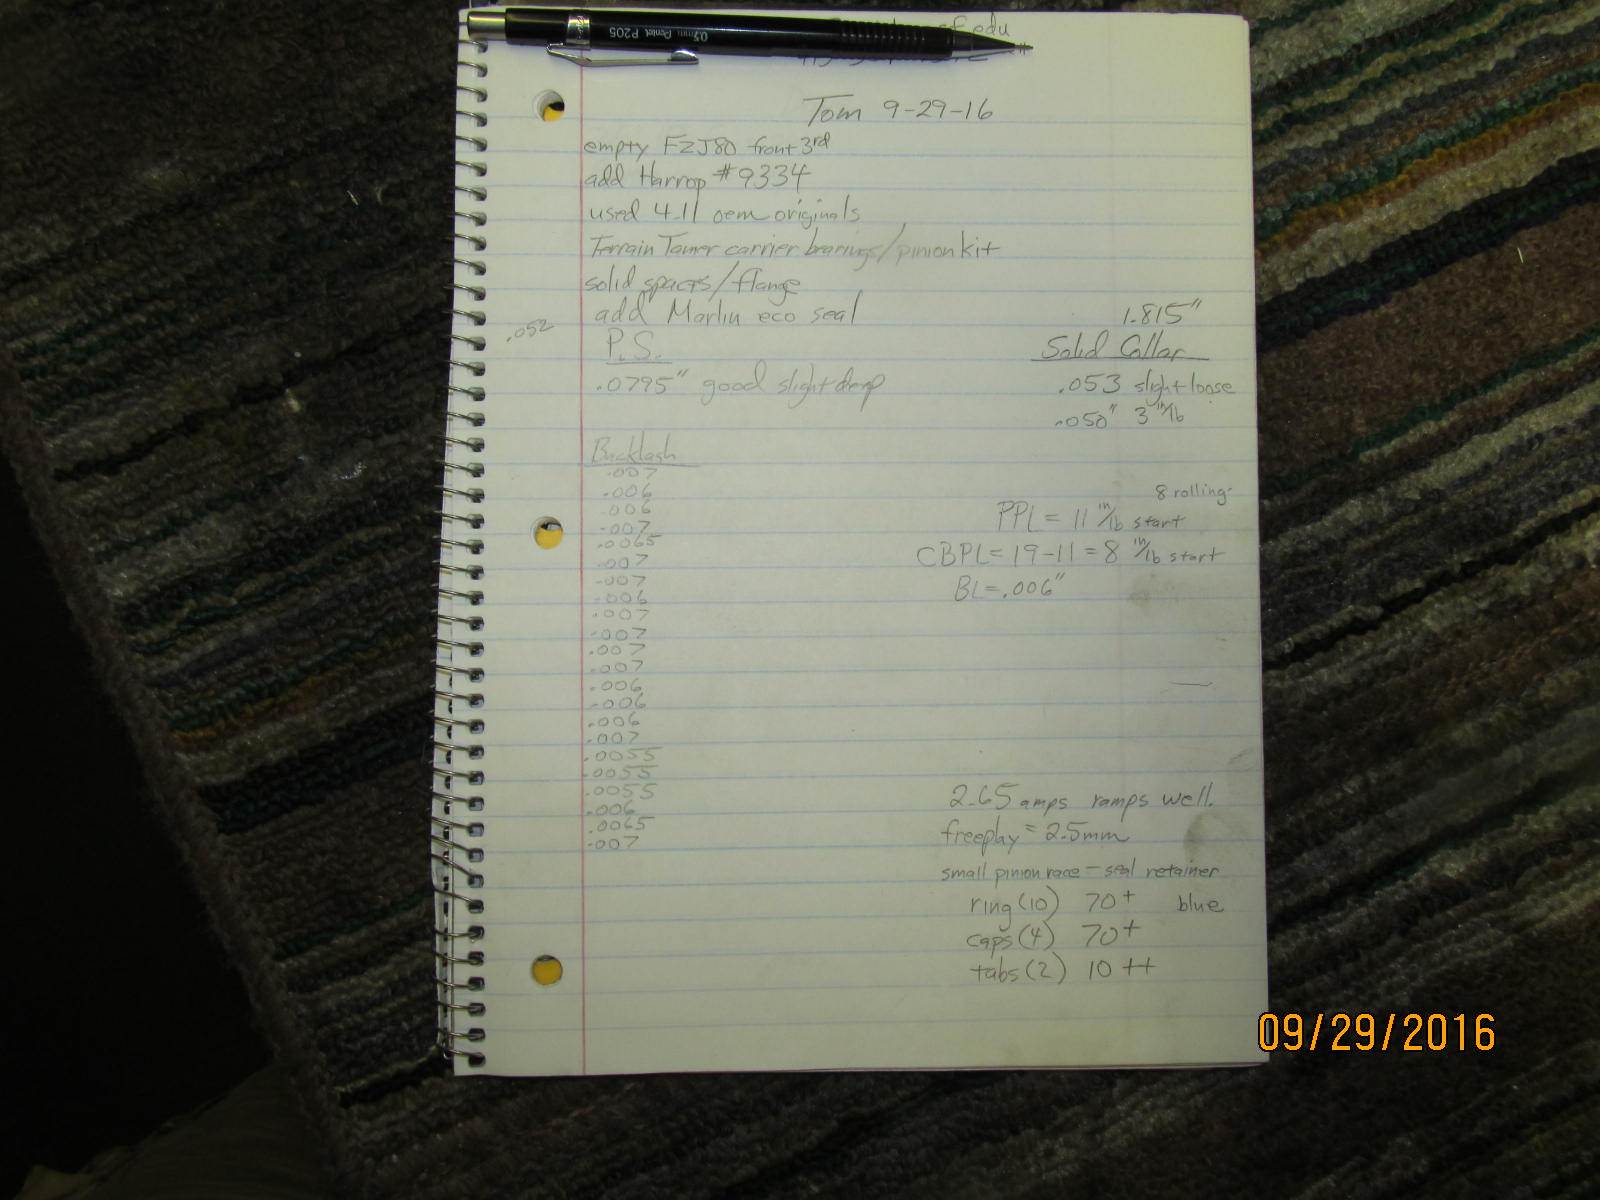 0.5mm Pentel P205
.edu
Tom 9-29-16
empty FZJ80 front 3rd
add Harrop #9334
used 4.11 oem originals
Terrain Tamer carrier bearings/pinion kit
solid spacrs/flange
add Marlin eco seal
.052
P.S.
.0795" good slight deep
1.815"
Solid Collar
.053 slight loose
.050" 3 in/lb
Backlash
.007
.006
.006
.007
.0065
.007
.007
.006
.007
.007
.007
.007
.006
.006
.006
.007
.0055
.0055
.0055
.006
.0065
.007
8 rolling
PPL = 11 in/lb start
CBPL = 19-11 = 8 in/lb start
BL = .006"
2.65 amps ramps well.
freeplay = 2.5mm
small pinion race - seal retainer
ring (10) 70+ blue
caps (4) 70+
tabs (2) 10++
09/29/2016